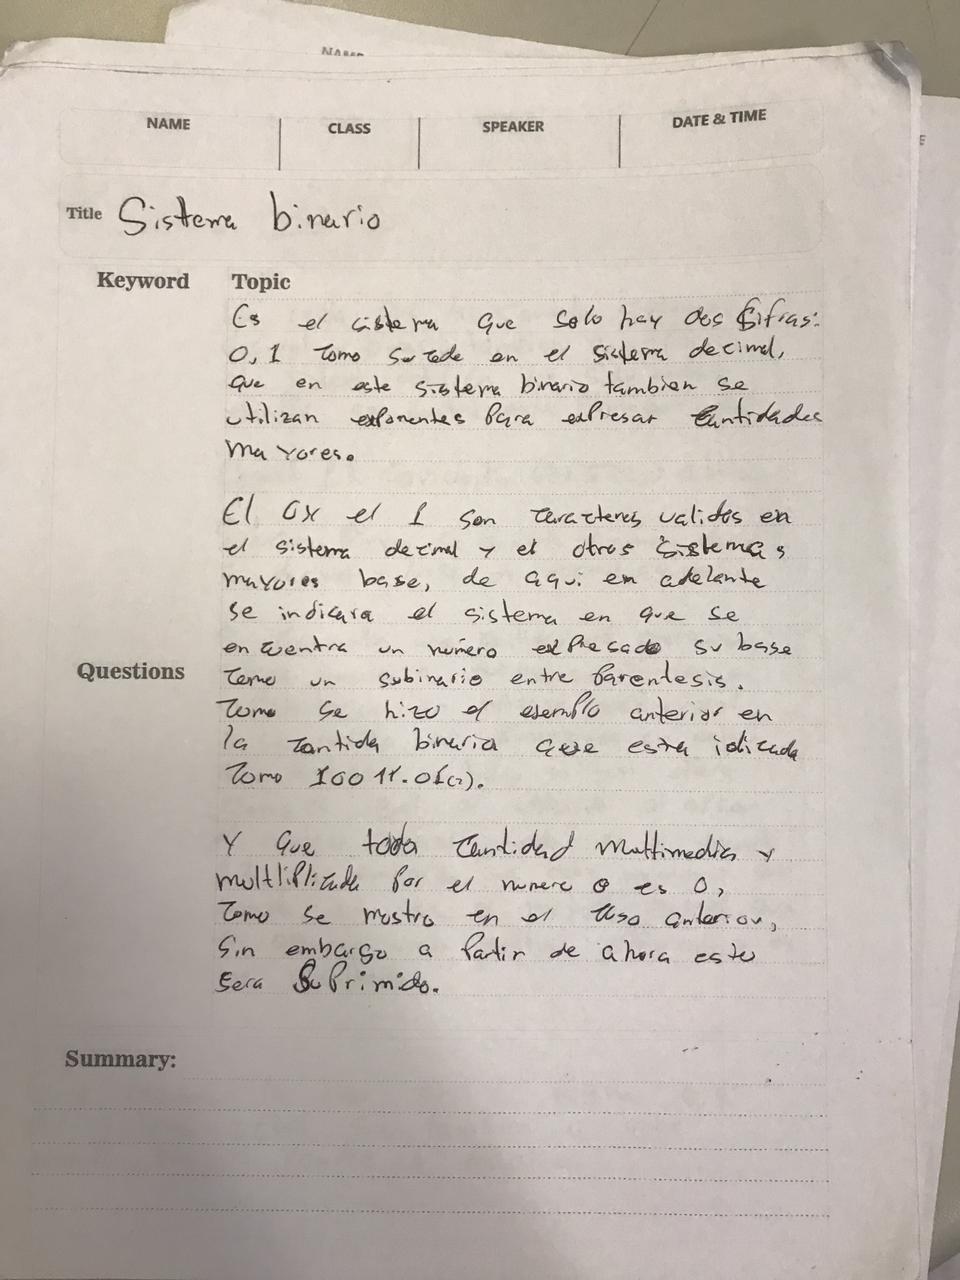 NAME
NAME CLASS SPEAKER DATE & TIME
Title Sistema binario
Keyword Topic
Es el cistema que solo hay dos Cifras:
0,1 Como sucede en el sistema decimal,
que en este sistema binario tambien se
utilizan exponentes para expresar Cantidades
mayores.
El 0x el 1 son caracteres validos en
el sistema decimal y el otros sistemas
mayores base, de aqui en adelante
se indicara el sistema en que se
encuentra un número expresado su base
Questions Como un subinario entre parentesis.
Como se hizo el ejemplo anterior en
la Cantida binaria que esta idicada
Como 10011.01(2).
Y que toda Cantidad multimedia y
multliplicada por el numero 0 es 0,
Como se mostro en el caso anterior,
sin embargo a partir de ahora esto
sera Suprimido.
Summary: